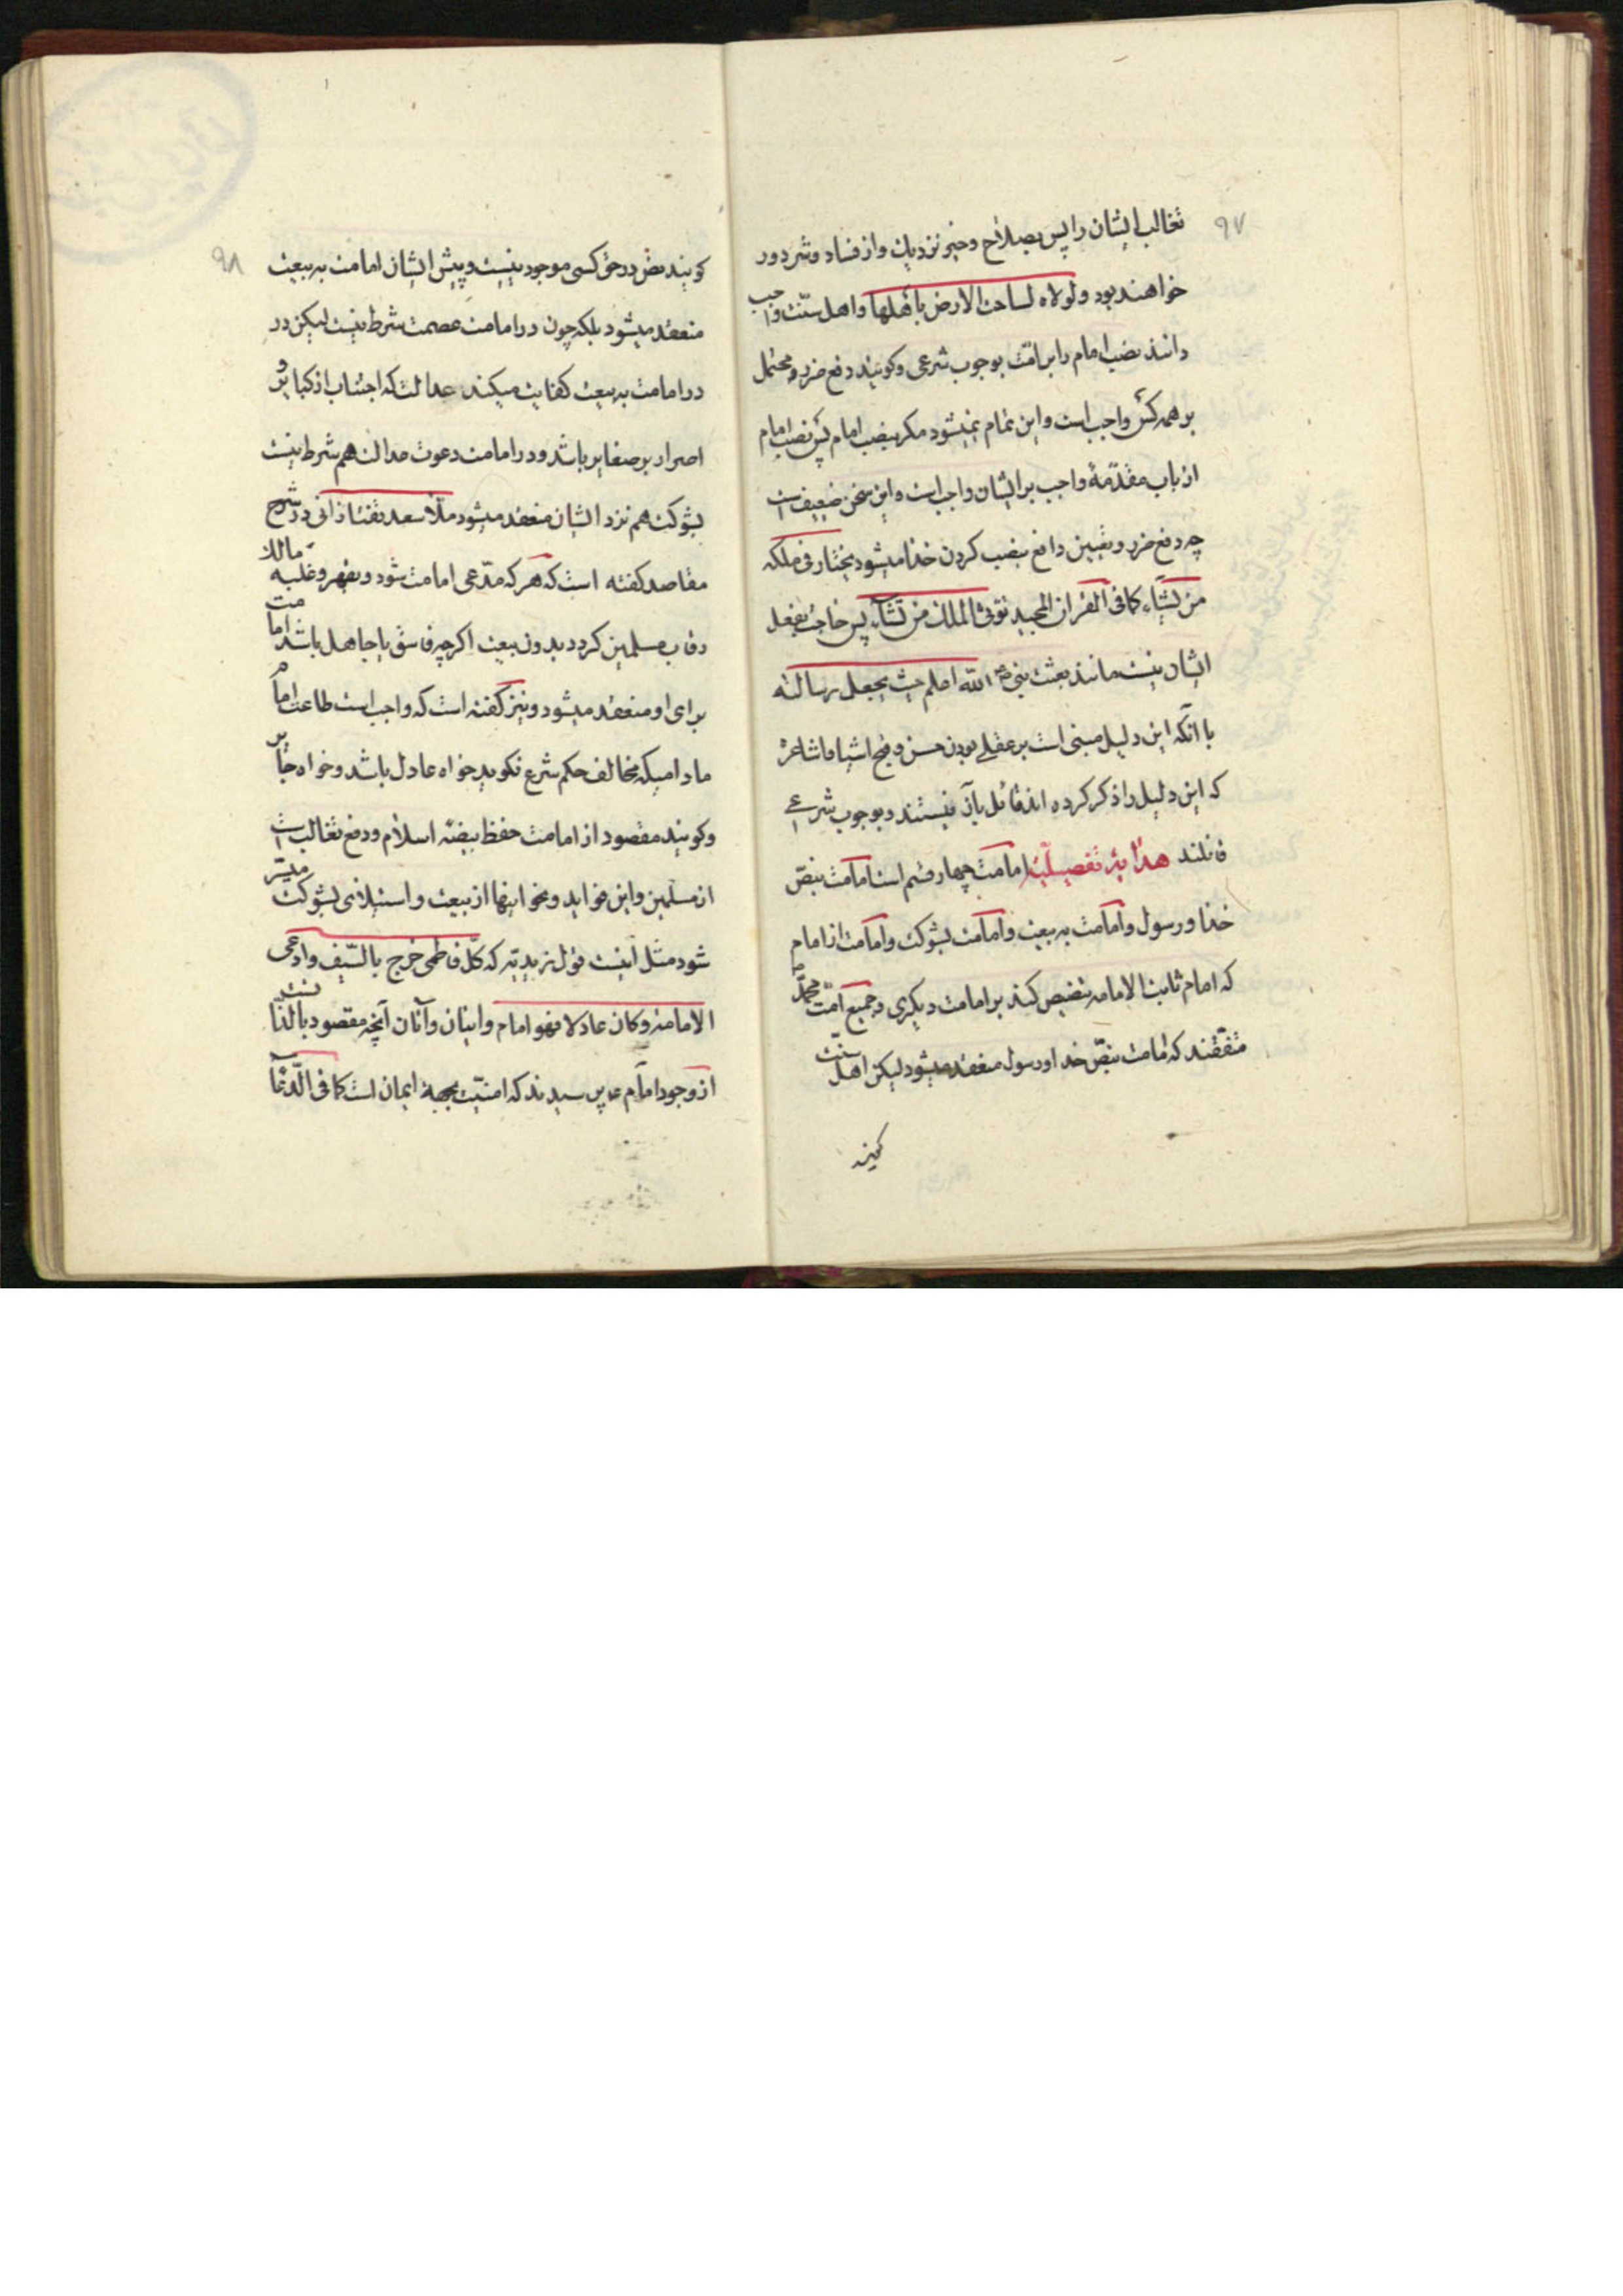 ۹۷
تغالب ایشان را پس بصلاح و خیر نزدیك و از فساد و شر دور
خواهند بود و لولاه لساخت الارض باهلها و اهل سنّت واجب
دانند نصب امام را بر امّت بوجوب شرعی و کویند دفع ضرر محتمل
بر همه کس واجب است و این تمام نمیشود مکر بنصب امام پس نصب امام
از باب مقدّمهٔ واجب بر ایشان واجب است و این سخن ضعیف است
چه دفع ضرر و تعیین دافع بنصب کردن خدا میشود یختار فی ملکه
من یشآء کما فی القران المجید تؤتی الملك من تشآء پس حاجت بفعل
ایشان نیست مانند بعثت نبی الله اعلم حیث یجعل رسالته
با آنکه این دلیل مبنی است بر عقلے بودن حسن و قبح اشیا و اشاعره
که این دلیل را ذکر کرده اند قائل بآن نیستند و بوجوب شرعے
قائلند هدایة تفصیلیّة امامت چهار قسم است امامت بنصّ
خدا و رسول و امامت به بیعت و امامت بشوکت و امامت از امام
که امام ثابت الامامه تنصیص کند بر امامت دیکری و جمیع امّت محمّد ص
متفقند که امامت بنصّ خدا و رسول منعقد میشود لیکن اهل سنّت
کویند
۹۸
کویند نص در حق کسی موجود نیست و پیش ایشان امامت به بیعت
منعقد میشود بلکه چون در امامت عصمت شرط نیست لیکن در
در امامت به بیعت کفایت میکند عدالت که اجتناب از کبایر و
اصرار بر صغایر باشد و در امامت دعوت عدالت هم شرط نیست
بشوکت هم نزد ایشان منعقد میشود ملّا سعد تفتازانی در شرح
مقاصد کفته است که هر که مدّعی امامت شود و بقهر و غلبه مالك
رقاب مسلمین کردد بدون بیعت اکرچه فاسق یا جاهل باشد امامت
برای او منعقد میشود و نیز کفته است که واجب است طاعت امام
مادامیکه مخالف حکم شرع نکوید خواه عادل باشد و خواه جایر
و کویند مقصود از امامت حفظ بیضه اسلام و دفع تغالب است
از مسلمین و این فواید و نحو اینها از بیعت و استیلای بشوکت میسّر
شود مثل اینست قول زیدیّه که کلّ فاطمی خرج بالسّیف و ادعی
الامامة و کان عادلا فهو امام و اینان و آنان آنچه مقصود بالذّاتست
از وجود امام ع پرسیدند که امنیّت بجهة ایمان است کما فی الدّعآ